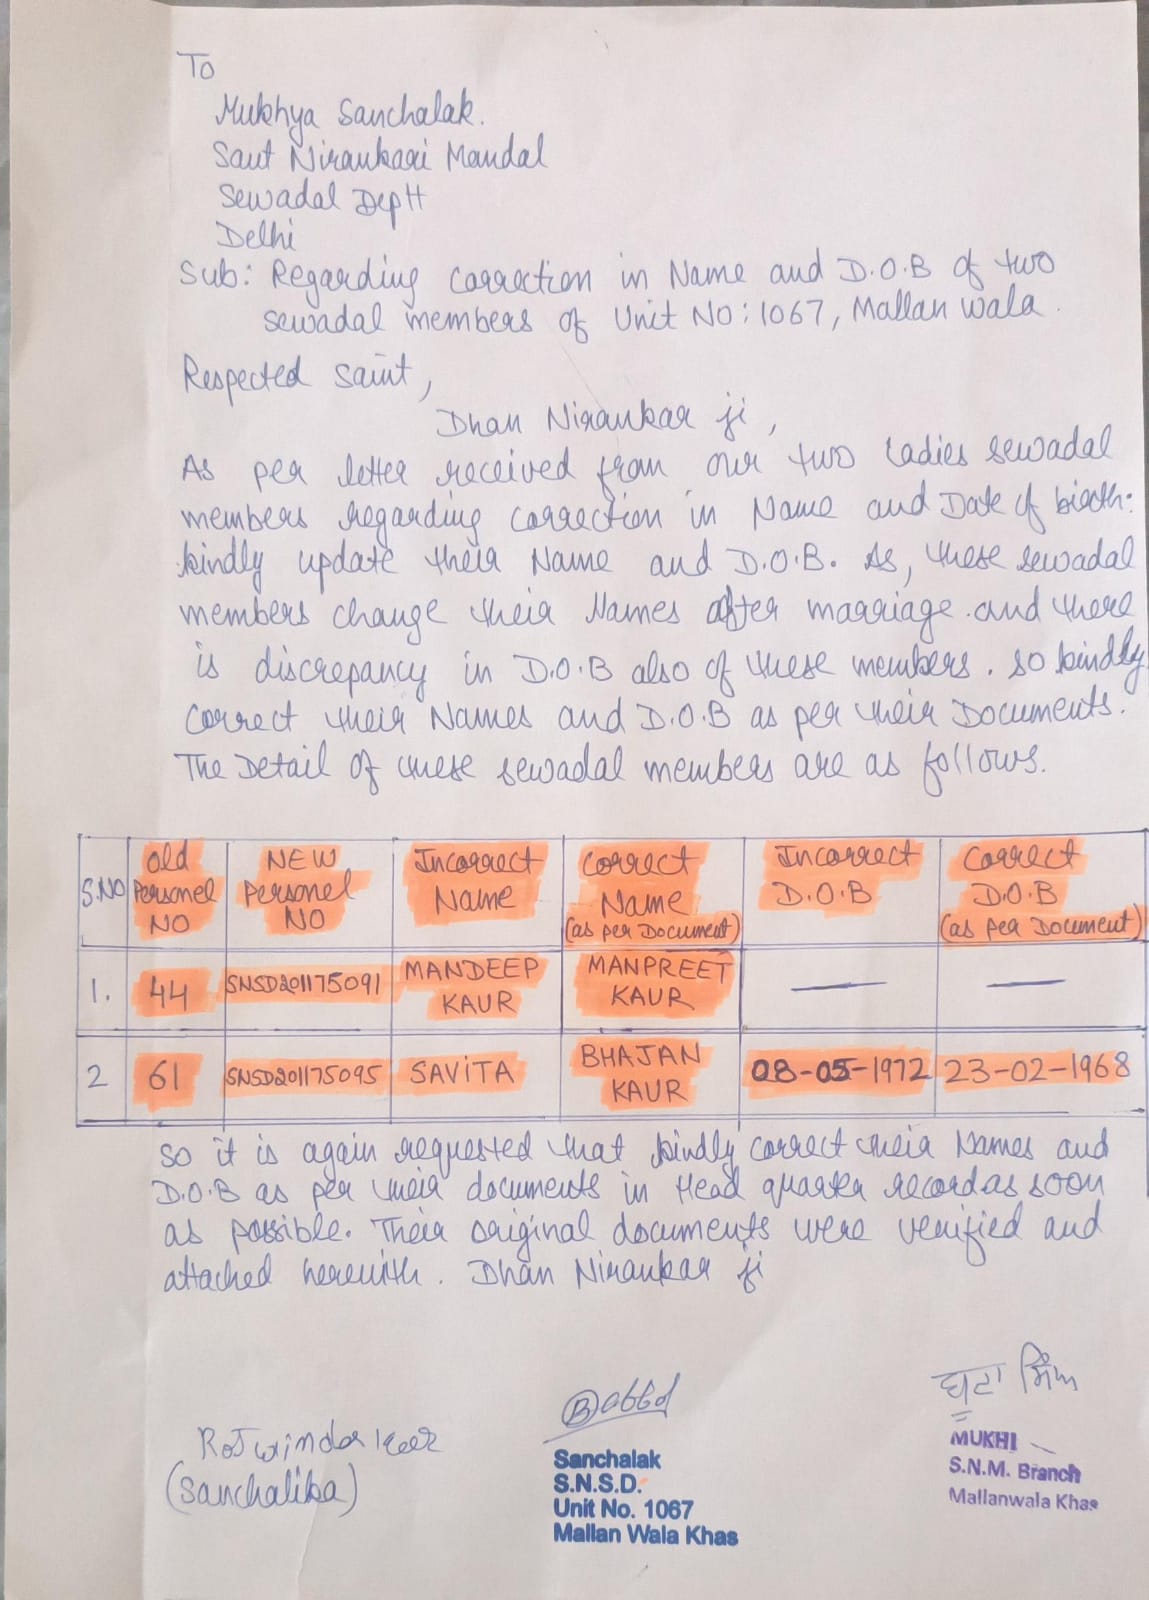 To
Mukhya Sanchalak.
Sant Nirankari Mandal
Sewadal Deptt
Delhi
Sub: Regarding correction in Name and D.O.B of two
sewadal members of Unit No: 1067, Mallan Wala.
Respected Saint,
Dhan Nirankar ji,
As per letter received from our two Ladies sewadal
members regarding correction in Name and Date of birth.
kindly update their Name and D.O.B. As, these sewadal
members change their Names after marriage. and there
is discrepancy in D.O.B also of these members. so kindly
correct their Names and D.O.B as per their Documents.
The Detail of these sewadal members are as follows.
S.NO | Old Personel NO | NEW Personel NO | Incorrect Name | Correct Name (as per Document) | Incorrect D.O.B | Correct D.O.B (as per Document)
1. | 44 | SNSD201175091 | MANDEEP KAUR | MANPREET KAUR | — | —
2 | 61 | SNSD201175095 | SAVITA | BHAJAN KAUR | 08-05-1972 | 23-02-1968
so it is again requested that kindly correct their Names and
D.O.B as per their documents in Head quarter record as soon
as possible. Their original documents were verified and
attached herewith. Dhan Nirankar ji
(Sanchalika)
Sanchalak
S.N.S.D.
Unit No. 1067
Mallan Wala Khas
ਬੂਟਾ ਸਿੰਘ
MUKHI
S.N.M. Branch
Mallanwala Khas